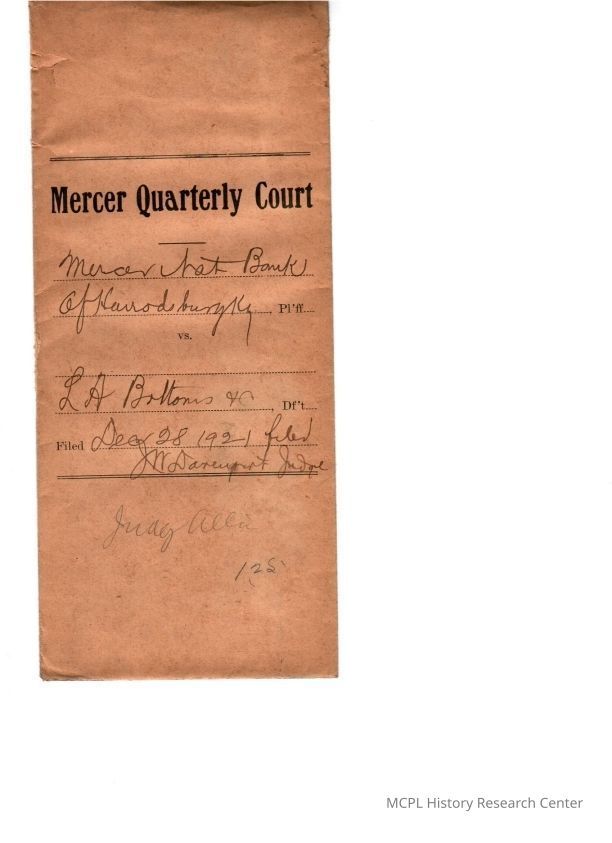 Mercer Quarterly Court
Mercer Nat Bank
Of Harrodsburg Ky, Pl'ff....
vs.
L A Bottoms &C, Df't....
Filed Dec 28 1921 filed
JW Davenport Judge
Judy
125
MCPL History Research Center